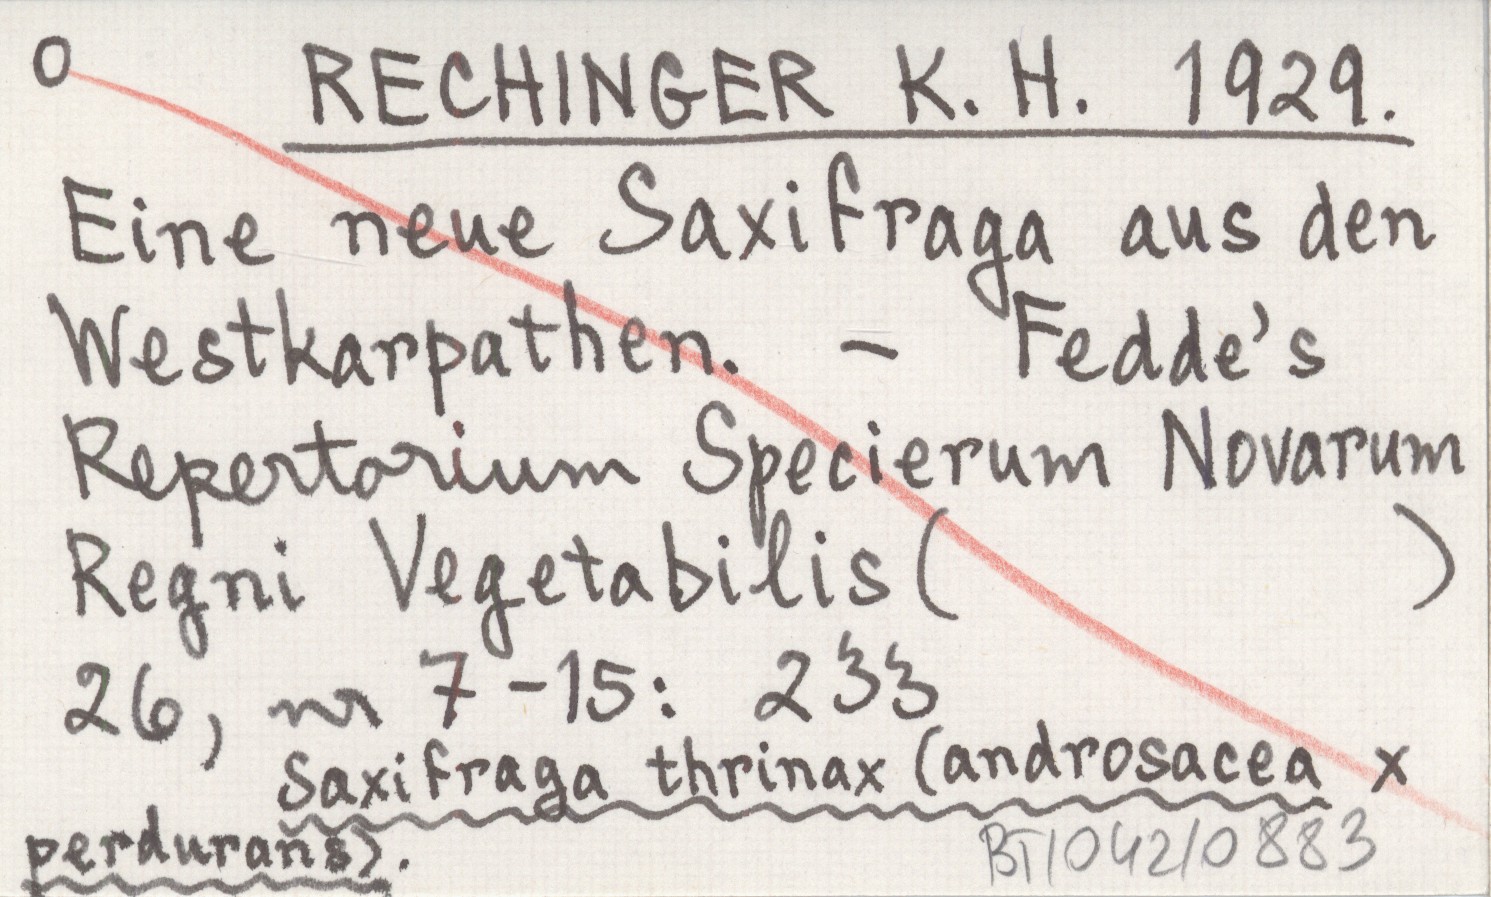 O RECHINGER K. H. 1929.
Eine neue Saxifraga aus den
Westkarpathen. - Fedde's
Repertorium Specierum Novarum
Regni Vegetabilis ( )
26, nr 7-15: 233
Saxifraga thrinax (androsacea x
perdurans).
BT/042/0883